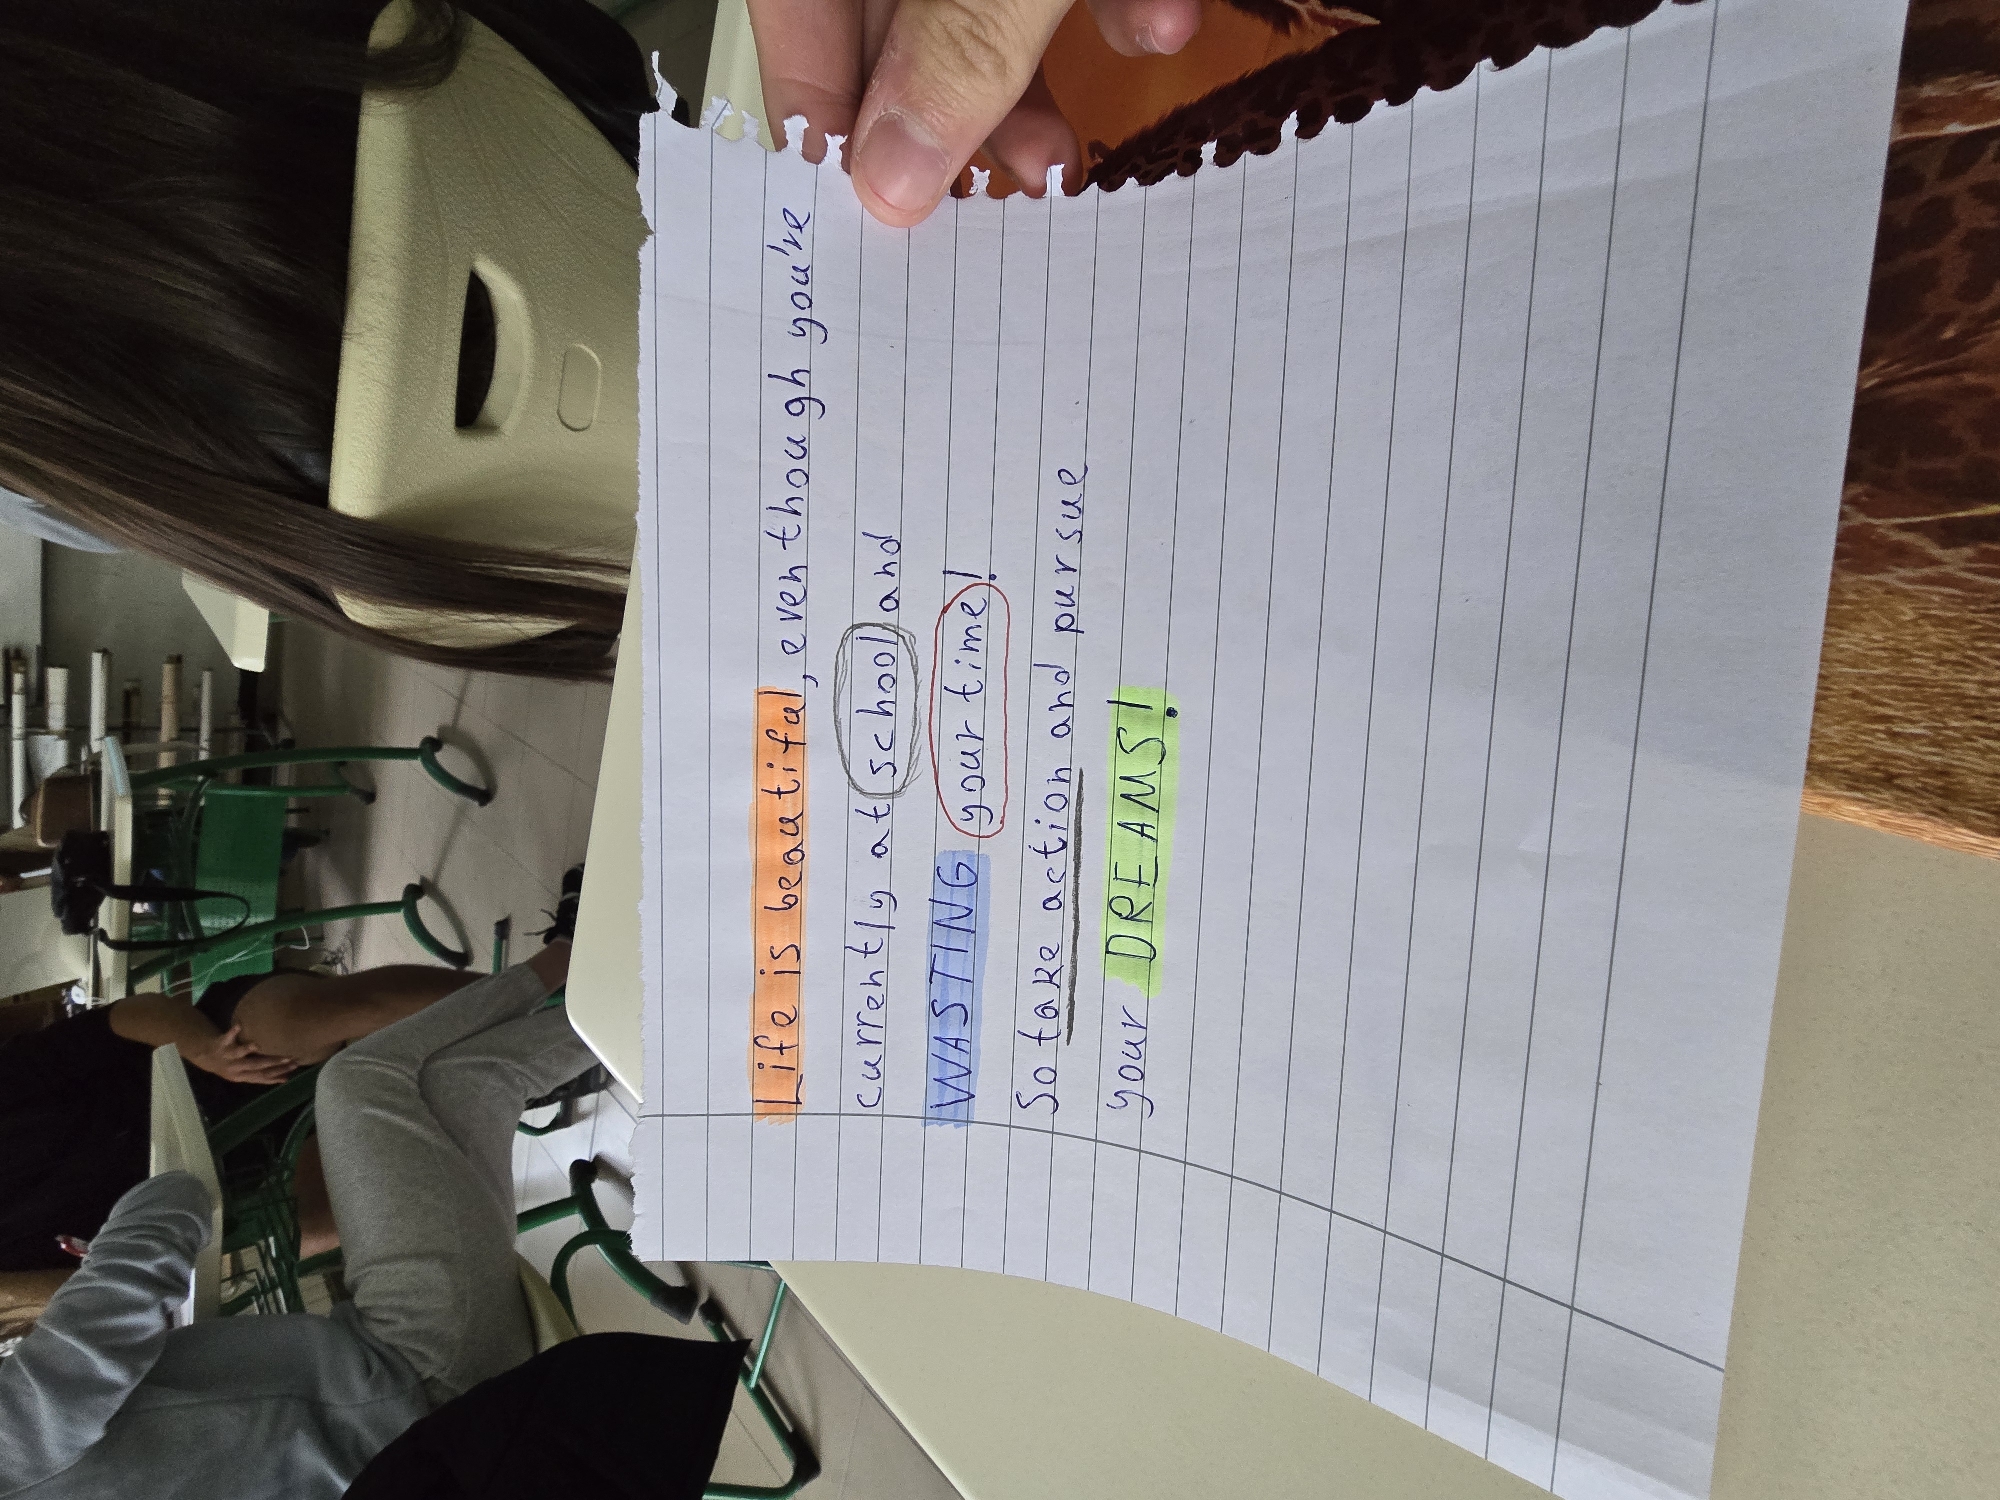 Life is beautiful, even though you're
currently at school and
WASTING your time!
So take action and pursue
your DREAMS!